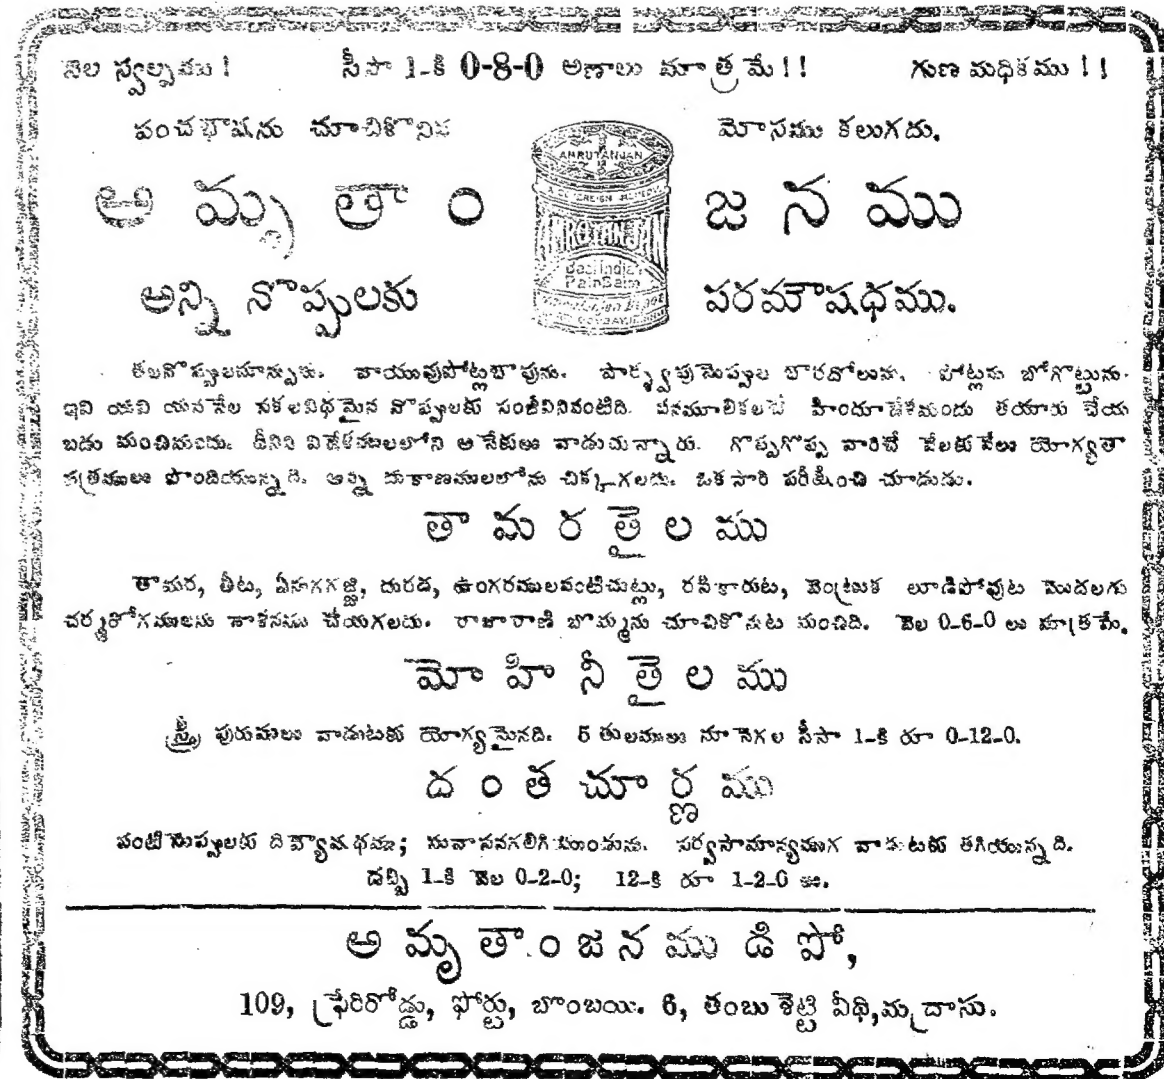 వెల స్వల్పము! సీసా 1-కి 0-8-0 అణాలు మాత్రమే!! గుణ మధికము!!
పంచభాషను చూచికొనిన మోసము కలుగదు.
AMRUTANJAN
అమృతాంజనము
AMRUTANJAN
Best India's
Pain Balm
అన్ని నొప్పులకు పరమౌషధము.
తలనొప్పులమాన్పును. వాయువుపోట్లబాపును. పార్శ్వపునొప్పుల బారదోలును. పోట్లను బోగొట్టును.
ఇవి యవి యననేల సకలవిధమైన నొప్పులకు సంజీవినివంటిది. వనమూలికలచే హిందూదేశమందు తయారు చేయ
బడు మంచిమందు. దీనిని విదేశములలోని అనేకులు వాడుచున్నారు. గొప్పగొప్ప వారిచే వేలకువేలు యోగ్యతా
పత్రములు పొందియున్నది. అన్ని దుకాణములలోను చిక్కగలదు. ఒకసారి పరీక్షించి చూడుడు.
తామరతైలము
తామర, తీట, ఏనుగగజ్జి, దురద, ఉంగరములవంటిచుట్లు, రసికారుట, వెంట్రుక లూడిపోవుట మొదలగు
చర్మరోగములను నాశనము చేయగలదు. రాజారాణి బొమ్మను చూచికొనుట మంచిది. వెల 0-6-0 లు మాత్రమే.
మోహినీతైలము
స్త్రీ పురుషులు వాడుటకు యోగ్యమైనది. 5 తులములు నూనెగల సీసా 1-కి రూ 0-12-0.
దంతచూర్ణము
పంటినొప్పులకు దివ్యౌషధము; సువాసనగలిగియుండును. సర్వసామాన్యముగ వాడుటకు తగియున్నది.
డబ్బి 1-కి వెల 0-2-0; 12-కి రూ 1-2-0 లు.
అమృతాంజనముడిపో,
109, ఫ్రేరిరోడ్డు, ఫోర్టు, బొంబయి. 6, తంబుశెట్టి వీథి,మద్రాసు.